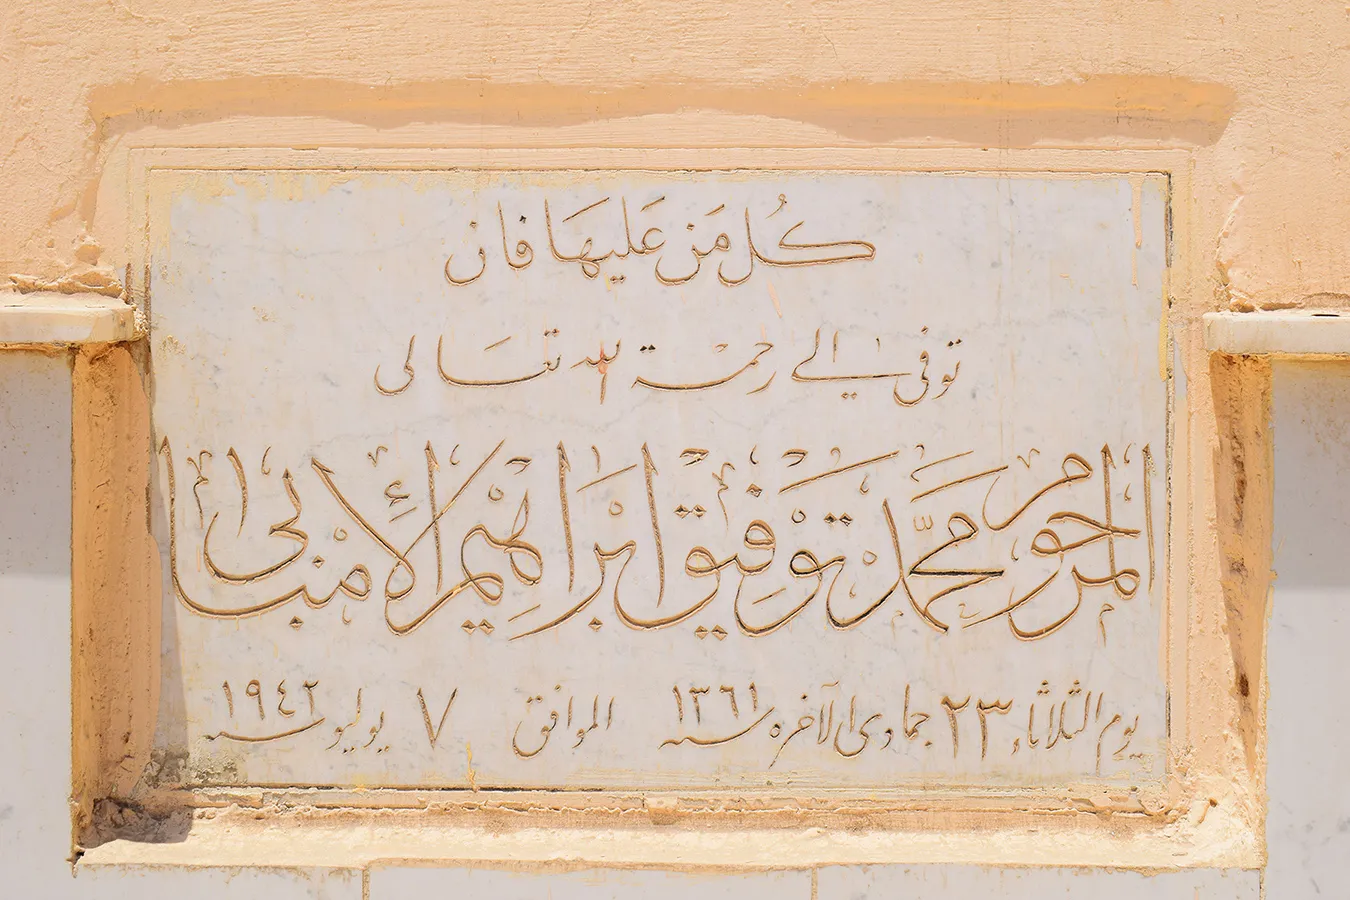 كُل مَن عَليهَا فان
توفى إلى رحمة الله تعالى
المرحوم محمّد توفيق ابراهيم الأمبابى
يوم الثلاثاء ٢٣ جمادى الآخره سنه ١٣٦١ الموافق ٧ يوليو سنه ١٩٤٢